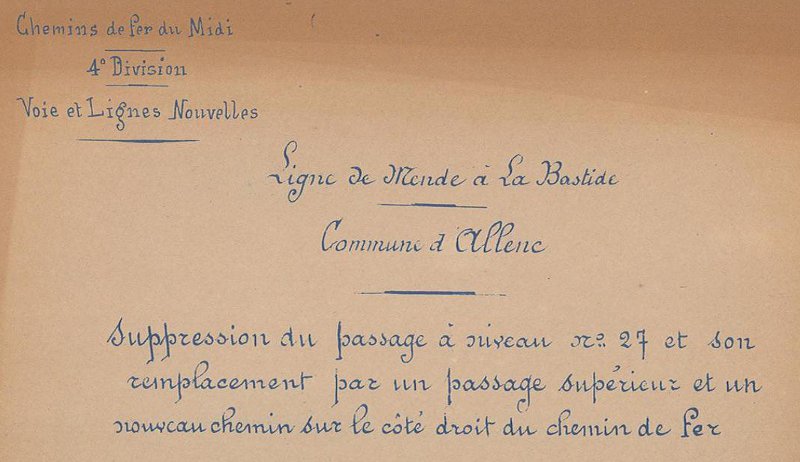 Chemins de Fer du Midi
4e Division
Voie et Lignes Nouvelles
Ligne de Mende à La Bastide
Commune d'Allenc
Suppression du passage à niveau no. 27 et son
remplacement par un passage supérieur et un
nouveau chemin sur le côté droit du chemin de Fer